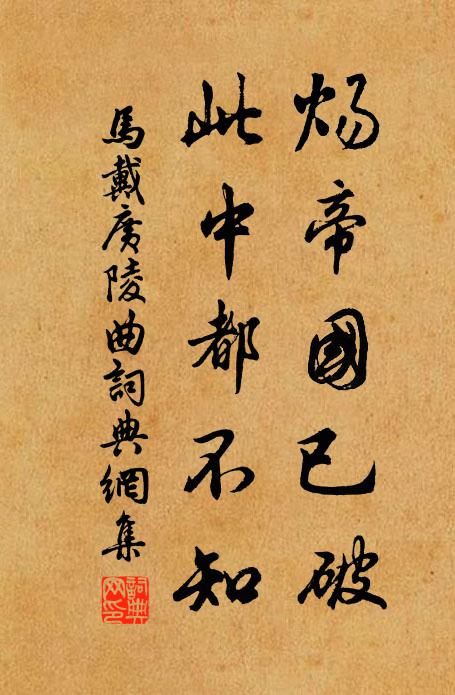 煬帝國已破
此中都不知
馬戴廣陵曲詞典網集
詞典網印